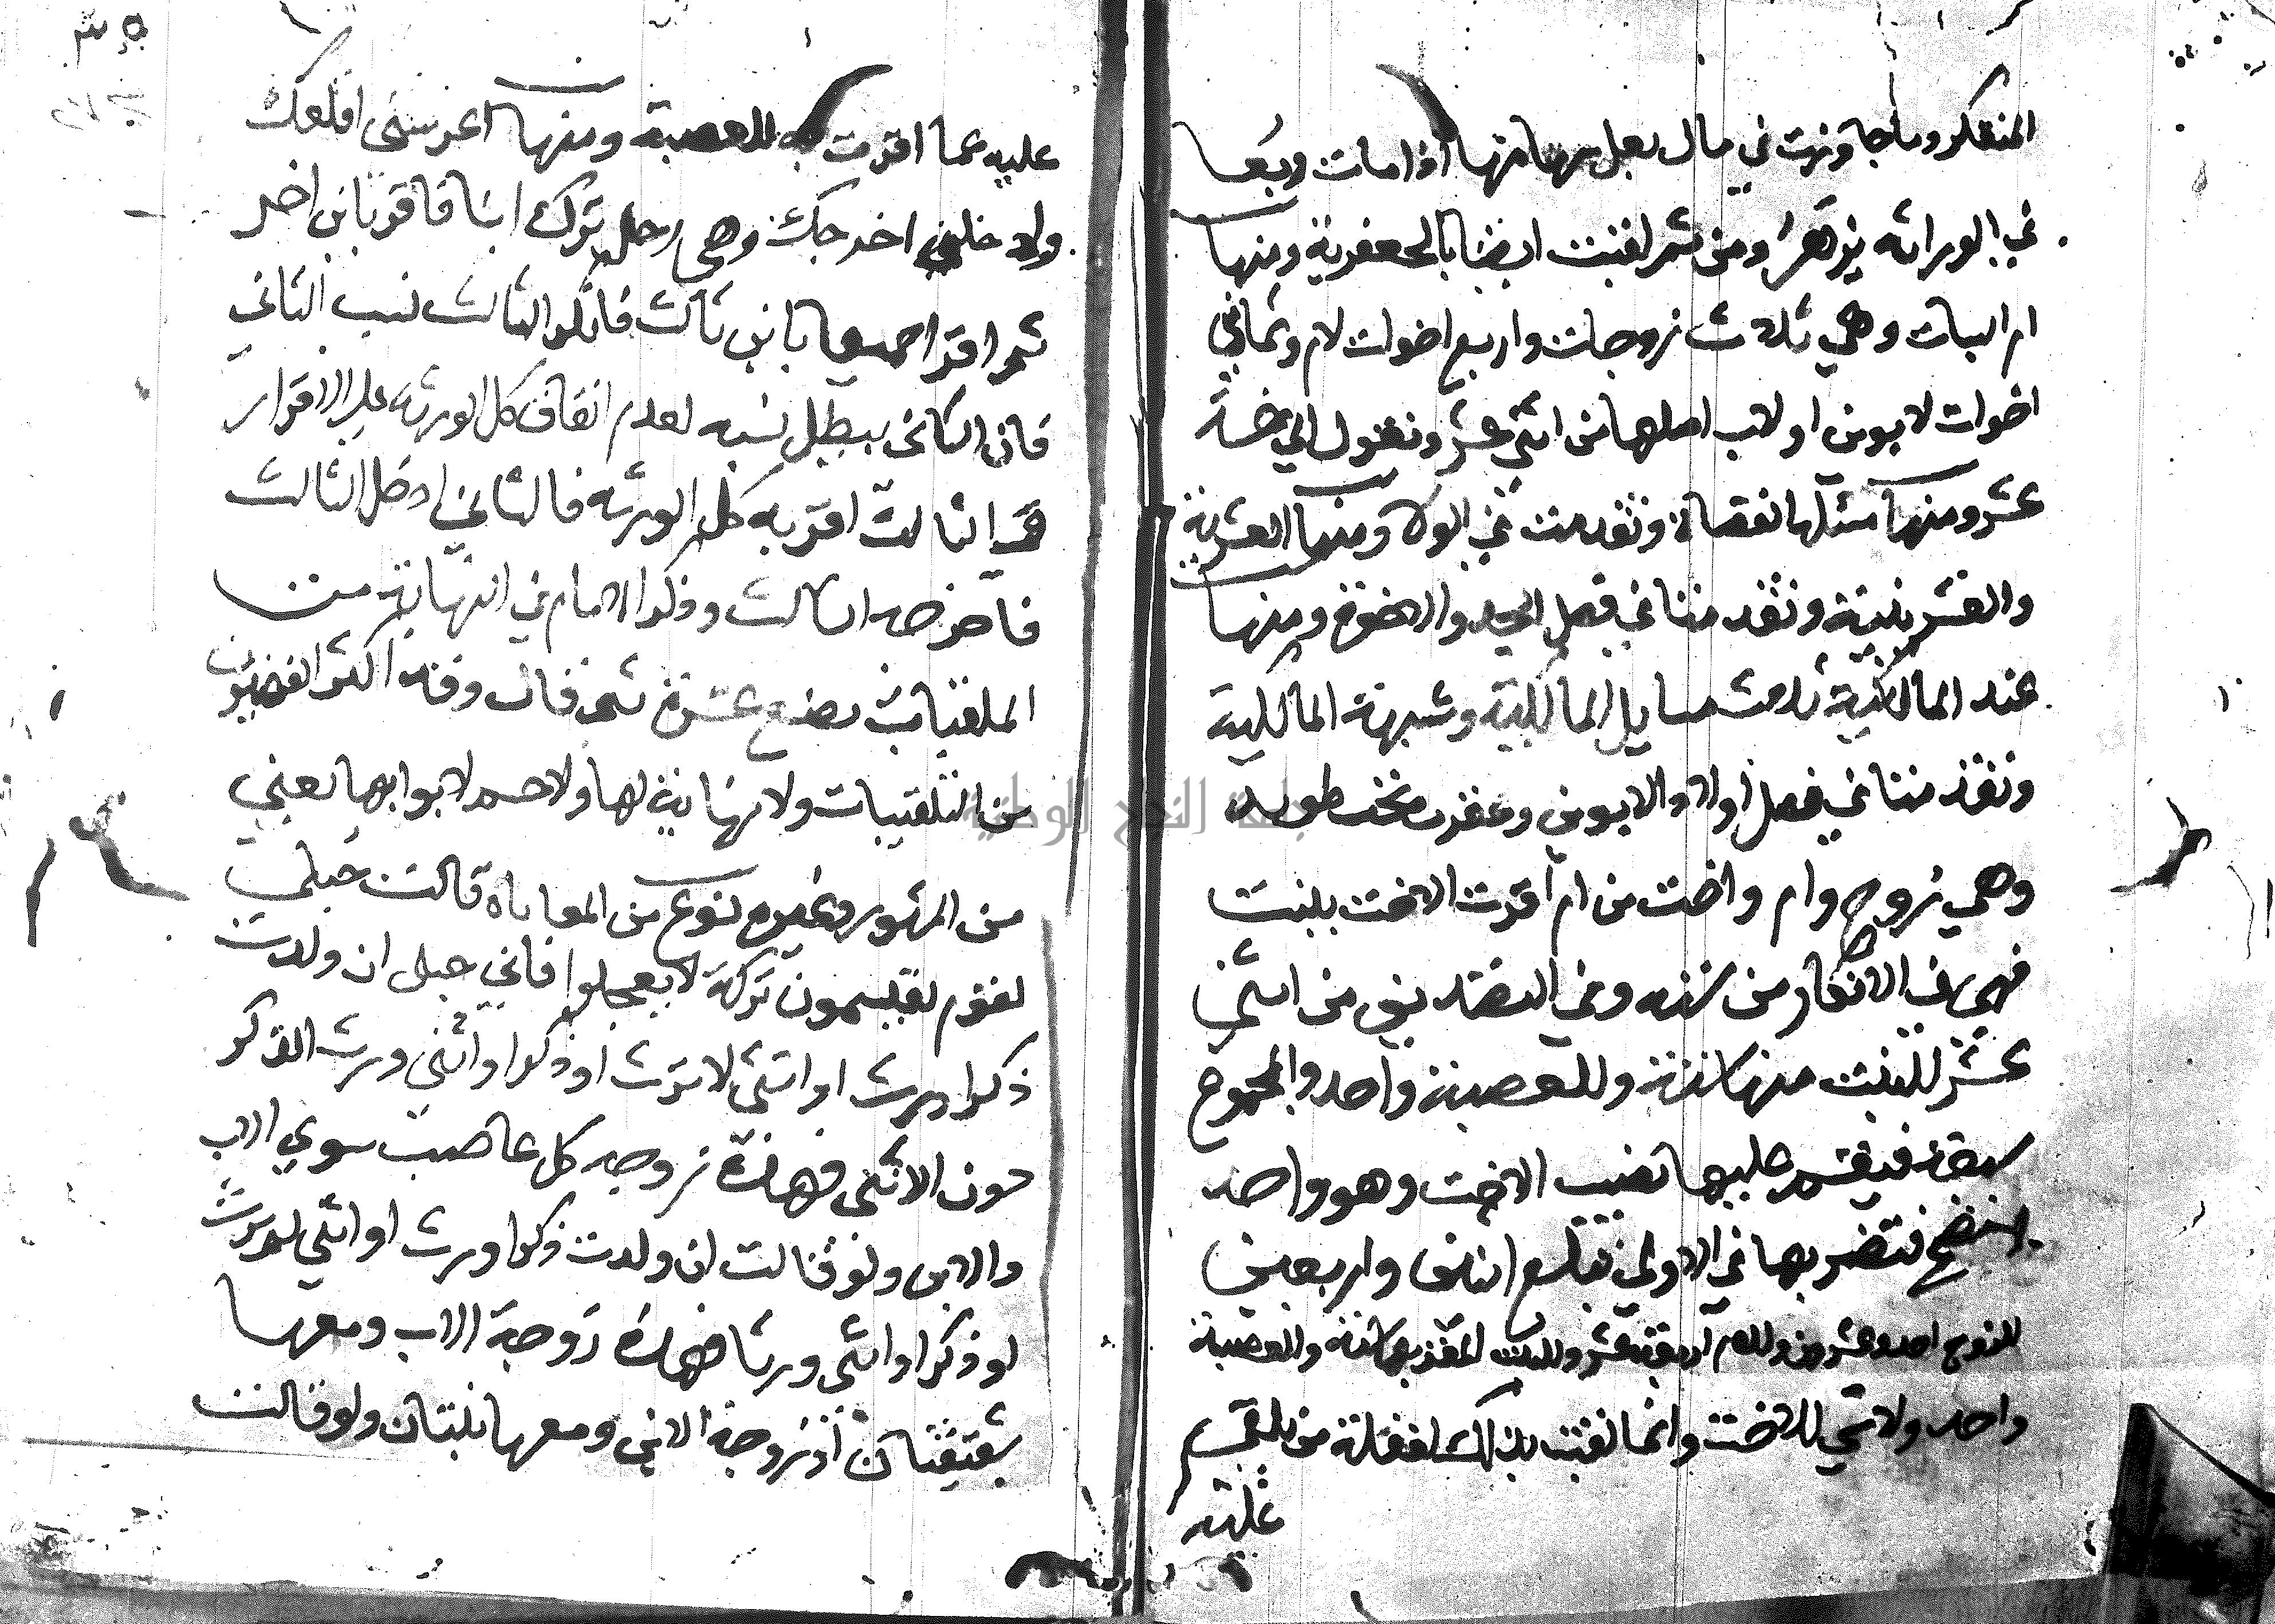 المنكر وما جاوزت في مال بعل سهامها اذا مات وبعا
في الوراثه يزهر ومن ثم لقبت ايضا بالجعفرية ومنها
ام البنات وهي ثلاث زوجات واربع اخوات لام وثماني
اخوات لابوين او لاب اصلها من اثني عشر وتعول الي خمسة
عشر ومنها مسئلة القضاة وتقدمت في الولا ومنها العشرية
والعشرينية وتقدمتا في فصل الجد والاخوة ومنها
عند المالكية ثلاث مسايل المالكية وشبهة المالكية
وتقدمتا في فصل اولاد الابوين وعقرب تحت طوبه
وهي زوج وام واخت من ام اقرت الاخت ببنت
فهي في الانكار من سته وفي التصديق من اثني
عشر للبنت منها ستة وللعصبة واحد والمجموع
سبعة فيقسم عليها نصيب الاخت وهو واحد
لا يصح فتضربها في الاولي تبلغ اثنين واربعين
للزوج احد وعشرون وللام اربعة عشر وللبنت المقر بها ستة وللعصبة
واحد ولا شي للاخت وانما لقبت بذلك لغفلة من يلقي
عليه
عليه عما اقرت به للعصبة ومنها اغرسني اقلعك
واد خلني اخرجك وهي رجل ترك ابنا فاقر بابن اخر
ثم اقرا جميعا بابن ثالث فانكر الثالث نسب الثاني
فان الثاني يبطل نسبه لعدم اتفاق كل الورثه علي الاقرار
به والثالث اقر به كل الورثه فالثاني ادخل الثالث
فاخرجه الثالث وذكر الامام في النهاية من
الملقبات بضع عشرة ثم قال وقد اكثر الفرضيون
من التلقيبات ولا نهاية لها ولا حسم لابوابها يعني
من المشهور وغيره نوع من المعاياه قالت حبلي
لقوم يقتسمون تركة لا تعجلوا فاني حبلي ان ولدت
ذكرا ورث او انثي لا ترث او ذكرا وانثي ورث الذكر
دون الانثي فهذه زوجه كل عاصب سوي الاب
والابن ولو قالت ان ولدت ذكرا ورث او انثي لم ترث
او ذكرا وانثي ورثا فهذه زوجة الاب ومعها
شقيقتان او زوجة الابن ومعها بنتان ولو قالت